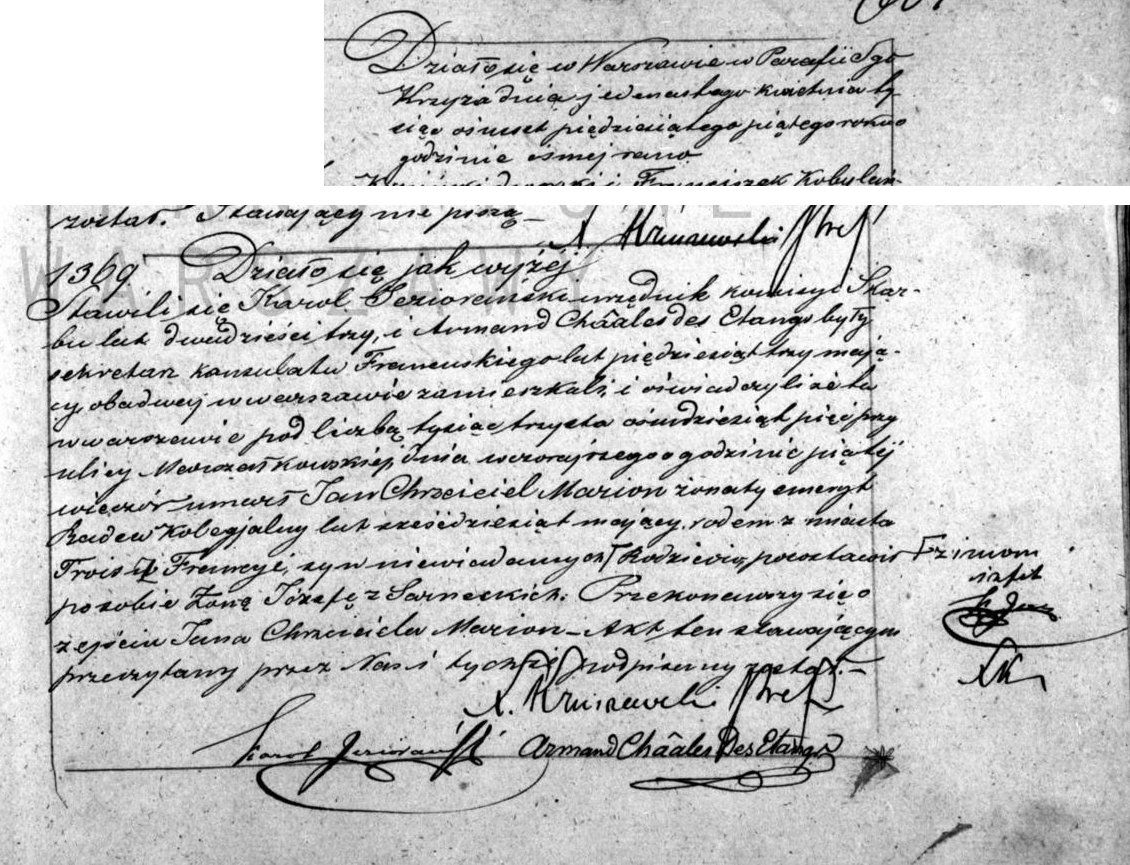 Działo się w Warszawie w Parafii Sgo
Krzyża dnia jedenastego kwietnia ty-
siąc ośmset pięćdziesiątego piątego roku o
godzinie ósmej rano
Franciszek Kobylań-
został. Stawający nie piszą
WARSZAWY
1369 Działo się jak wyżej
Stawili się Karol Jeziorański urzędnik komisyi Skar-
bu lat dwadzieści trzy, i Armand Châales des Etangs były
sekretarz konsulatu Francuskiego lat pięćdziesiąt trzy mają-
cy, obadwaj w warszawie zamieszkali, i oświadczyli że tu
w warszawie pod liczbą tysiąc trzysta ośmdziesiąt pięć przy
ulicy Marszałkowskiej, dnia wczorajszego o godzinie piątej
wieczór umarł Jan Chrzciciel Marion żonaty emeryt
Radca Kolegjalny lat sześćdziesiąt mający, rodem z miasta
Trois Francyi, syn niewiadomych Rodziców, pozostawił
po sobie Żonę Józefę z Sarneckich. Przekonawszy się o
zejściu Jana Chrzciciela Marion – Akt ten stawającym
przeczytany przez Nas i tychże podpisany został. –
Karol Jeziorański Armand Châales Des Etangs